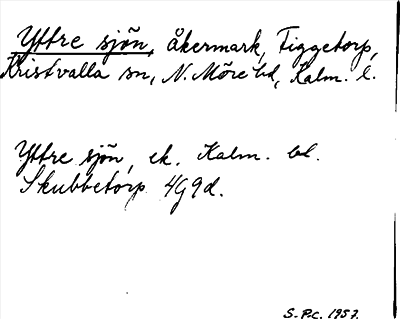 Yttre sjön, åkermark, Tiggetorp,
Kristvalla sn, N. Möre hd, Kalm. l.
Yttre sjön, ek. Kalm. bl.
Skubbetorp 4G9d.
S. Pc. 1957.